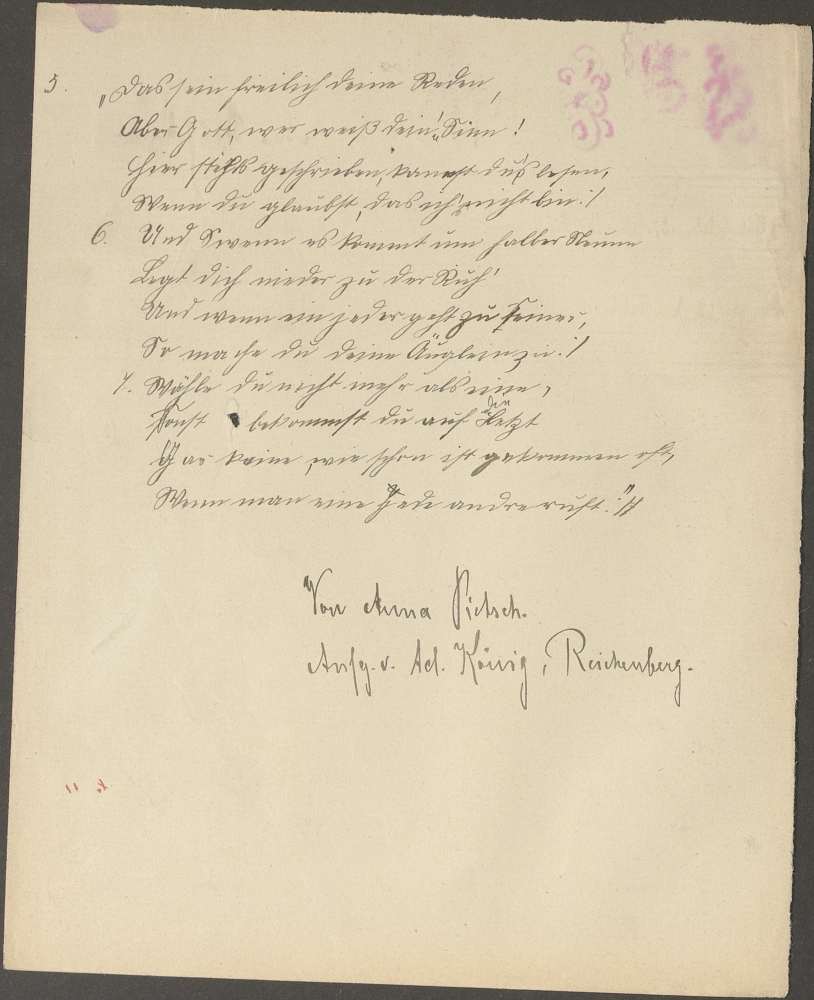 5. „Das sein freilich deine Reden,
Aber Gott, wer weiß dein'n Sinn!
Hier steht's geschrieben, kannst du's lesen,
Wenn du glaubst, das ich's nicht bin :/
6. Und wenn es kommt um halber Neune
Legt dich nieder zu der Ruh'
Und wenn ein jeder geht zu seiner,
So mache du deine Äuglein zu :/
7. Wähle du nicht mehr als eine,
Sonst bekommst du auf die Letzt
Gar keine, wie schon ist gekommen oft,
Wenn man eine Jede andre ruft." :/
Von Anna Pietsch.
Aufg. v. Ad. König, Reichenberg.